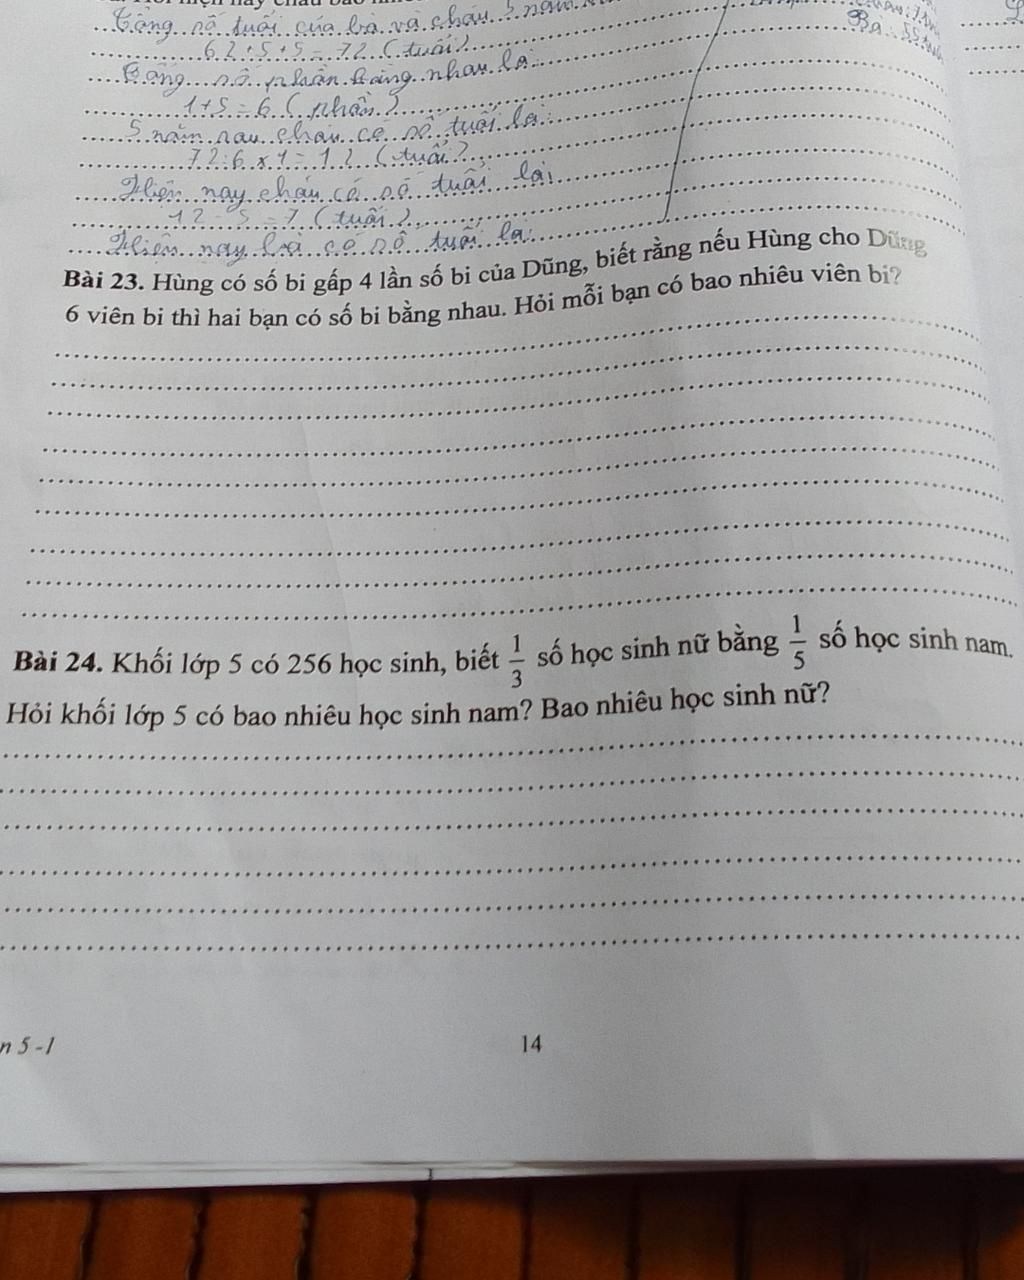 Tổng số tuổi của bà và cháu 5 năm
62 + 5 + 5 = 72 (tuổi)
Tổng số phần bằng nhau là:
1 + 5 = 6 (phần)
5 năm sau cháu có số tuổi là:
72 : 6 x 1 = 12 (tuổi)
Hiện nay cháu có số tuổi là:
12 - 5 = 7 (tuổi)
Hiện nay bà có số tuổi là:
Bà: 55 tuổi
Bài 23. Hùng có số bi gấp 4 lần số bi của Dũng, biết rằng nếu Hùng cho Dũng
6 viên bi thì hai bạn có số bi bằng nhau. Hỏi mỗi bạn có bao nhiêu viên bi?
Bài 24. Khối lớp 5 có 256 học sinh, biết 1/3 số học sinh nữ bằng 1/5 số học sinh nam.
Hỏi khối lớp 5 có bao nhiêu học sinh nam? Bao nhiêu học sinh nữ?
n 5 -1
14